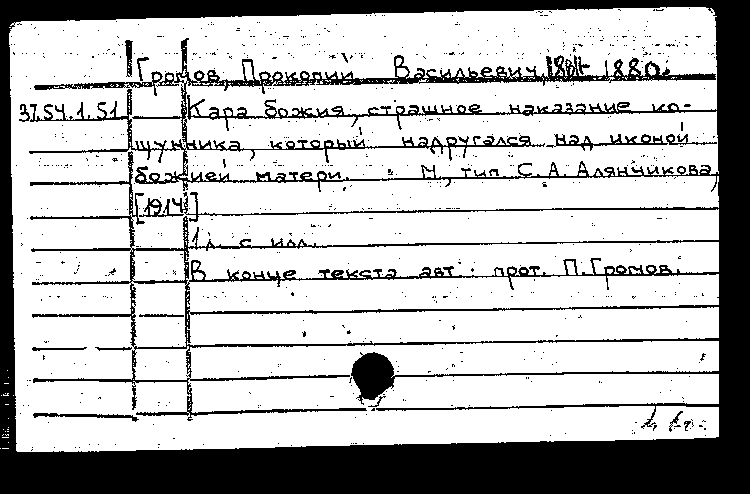 Громов, Прокопий Васильевич, 1880.
37.54.1.51 Кара божия, страшное наказание ко-
щунника, который надругался над иконой
божией матери. М., тип. С. А. Алянчикова,
[1914]
1 л. с илл.
В конце текста авт.: прот. П. Громов.